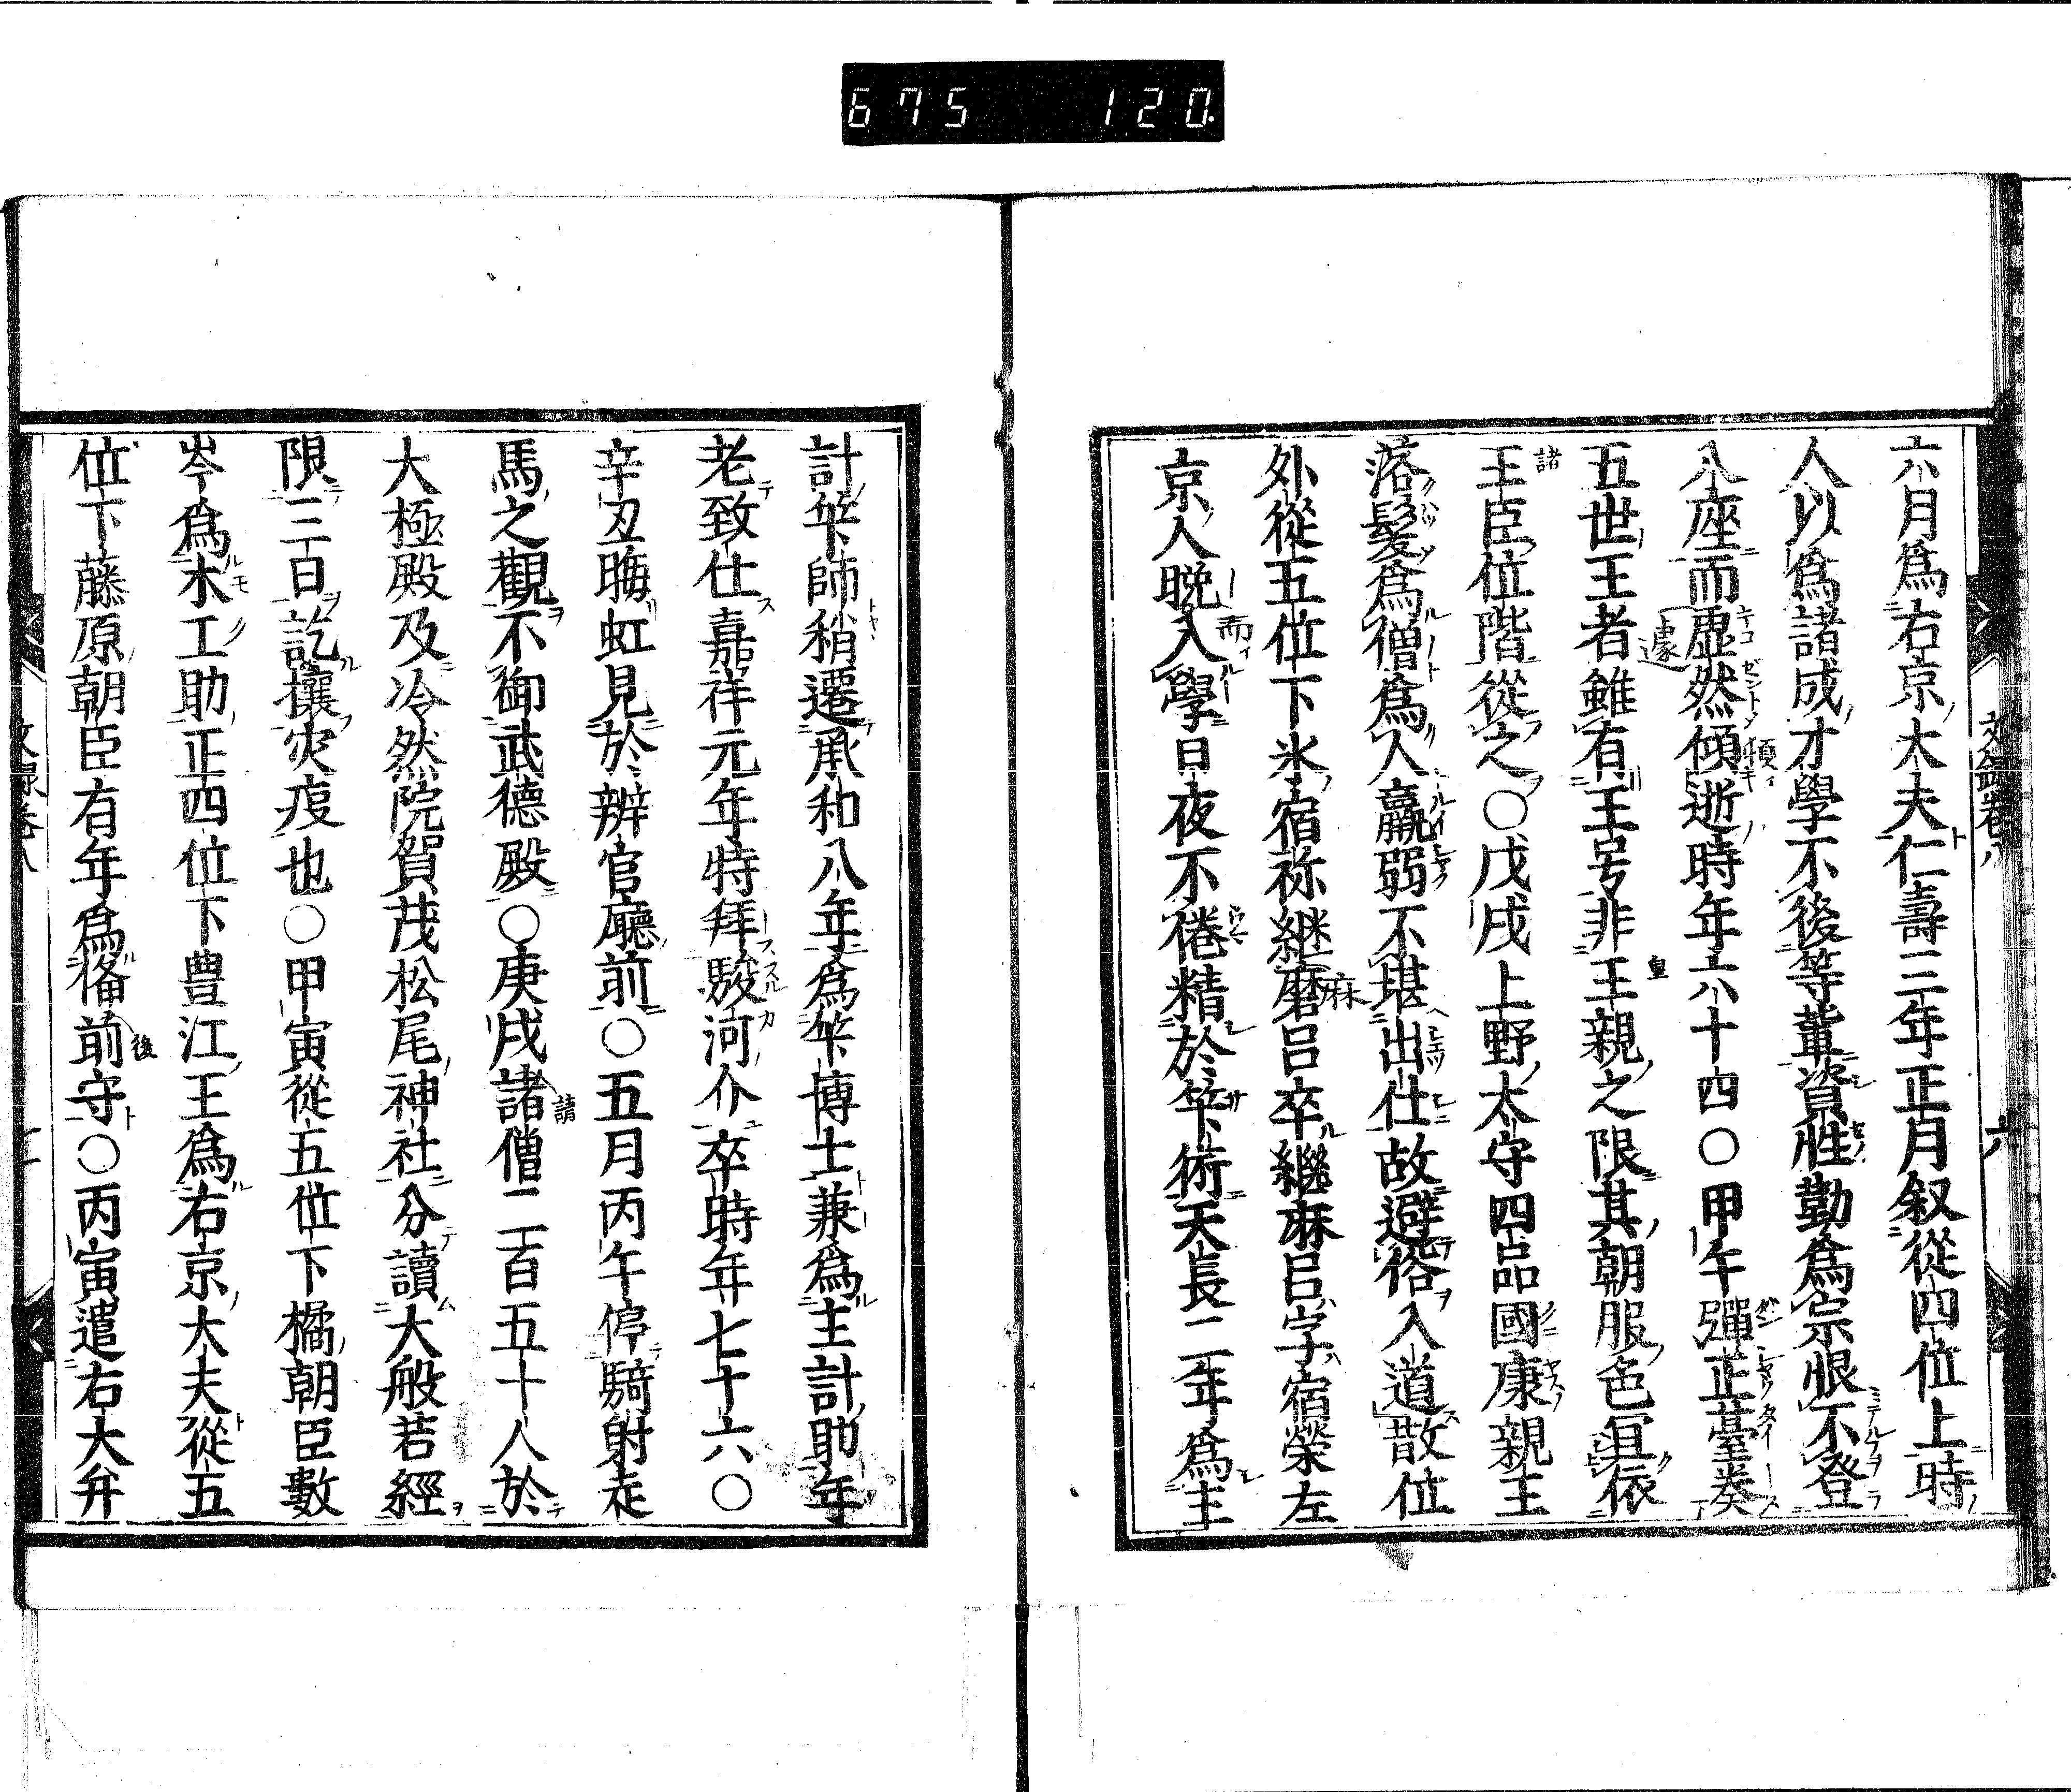 675 120
文錄卷八 六
六月爲右京大夫仁壽三年正月叙從四位上時
人以爲諸成才學不後等輩資性勤爲宗恨不登
八座而虛然傾逝時年六十四○甲午彈正臺奏
五世王者雖有王号非王親之限其朝服色冝依
王臣位階從之○戊戌上野太守四品國康親王
落髮爲僧爲人羸弱不堪出仕故避俗入道散位
外從五位下氷宿祢継磨呂卒継麻呂字宿榮左
京人晩入學日夜不倦精於筭術天長二年爲主
計筭師稍遷承和八年爲筭博士兼爲主計助年
老致仕嘉祥元年特拜駿河介卒時年七十六○
辛丑晦虹見於辨官廳前○五月丙午停騎射走
馬之觀不御武德殿○庚戌諸僧二百五十人於
大極殿及冷然院賀茂松尾神社分讀大般若經
限三日訖攘灾疫也○甲寅從五位下橘朝臣數
岑爲木工助正四位下豊江王爲右京大夫從五
位下藤原朝臣有年爲俻前守○丙寅遣右大弁